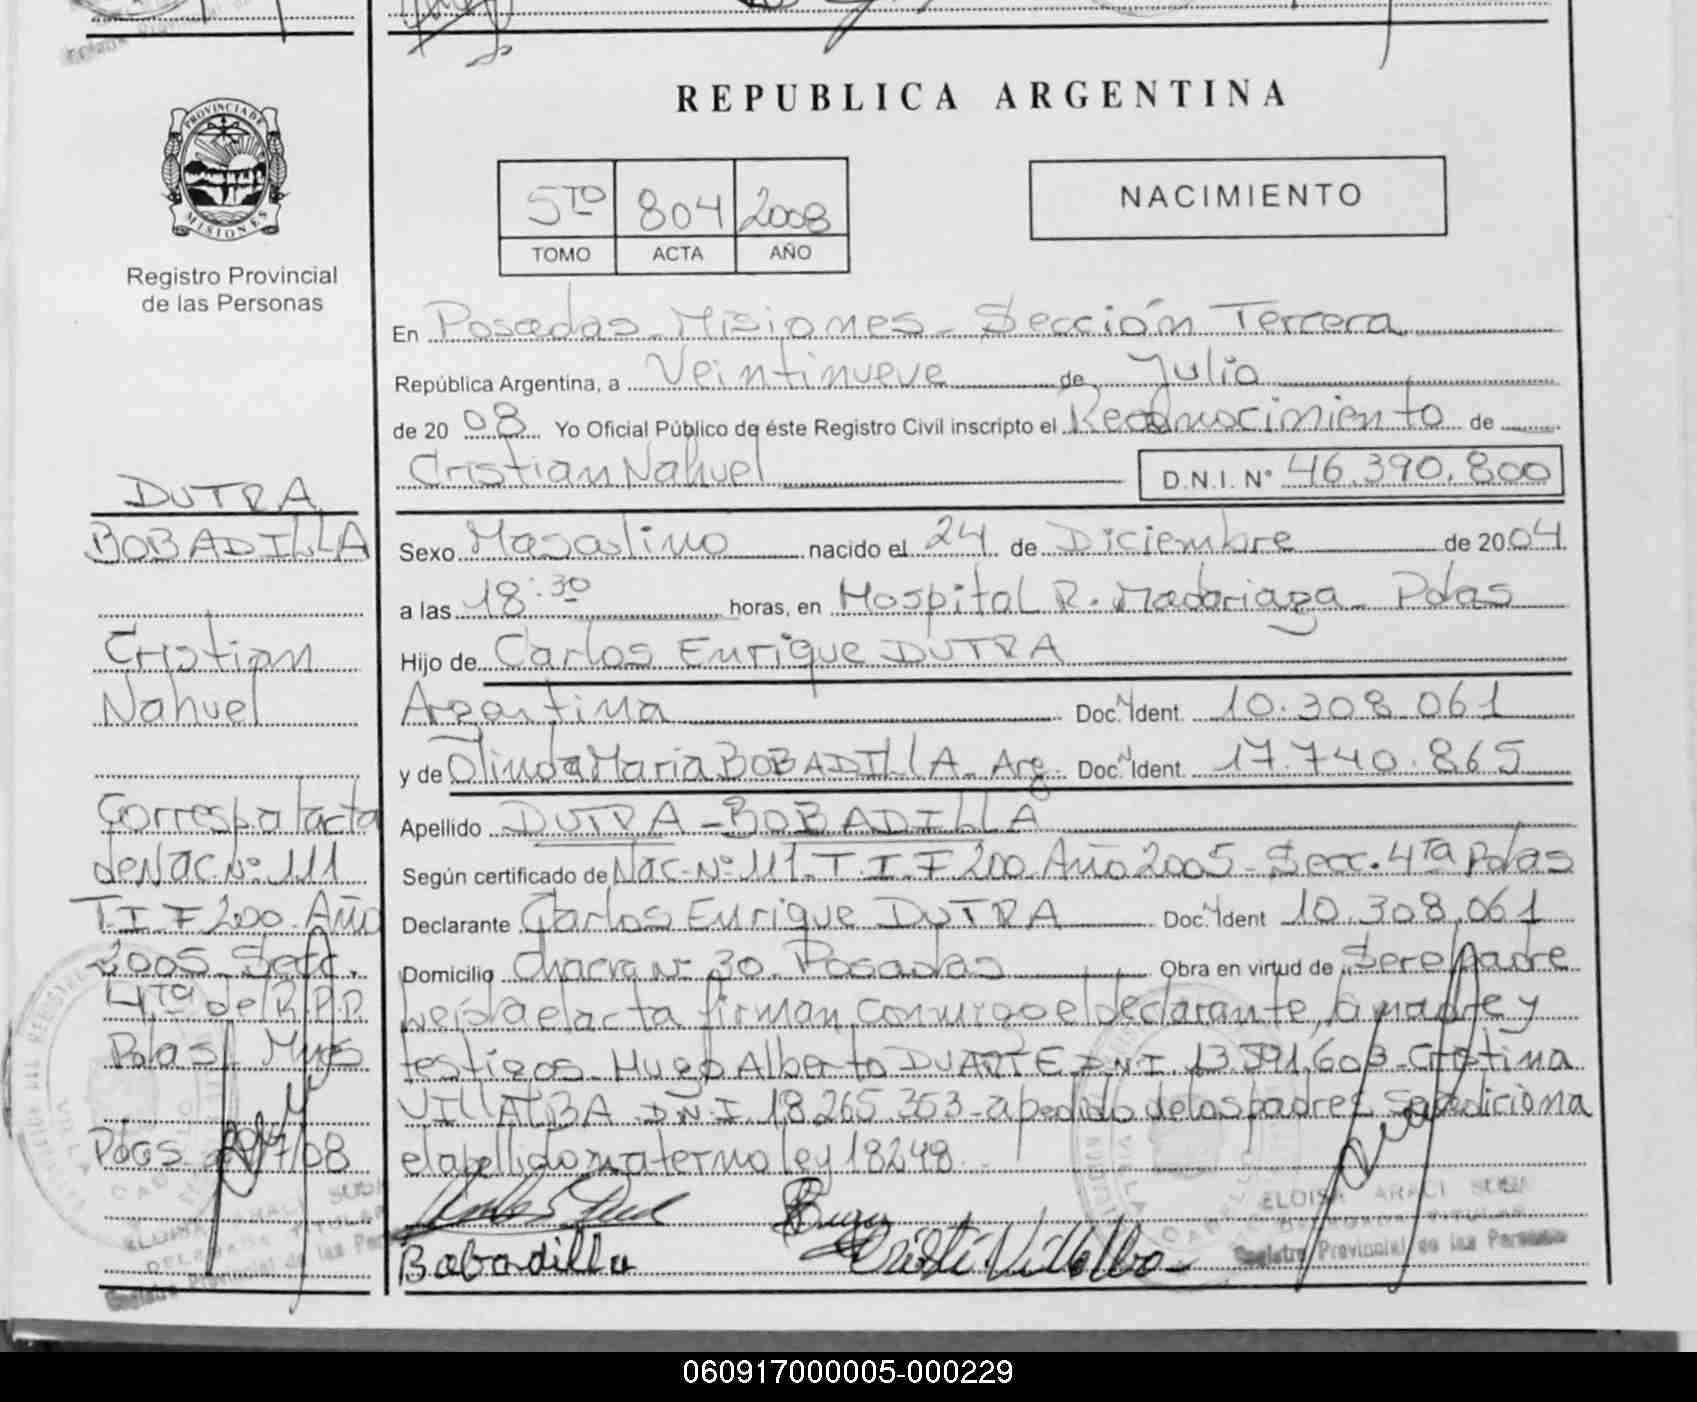 REPUBLICA ARGENTINA
PROVINCIA DE
MISIONES
Registro Provincial
de las Personas
5TO 804 2008
TOMO ACTA AÑO
NACIMIENTO
En Posadas - Misiones - Sección Tercera
República Argentina, a Veintinueve de Julio
de 2008 Yo Oficial Público de éste Registro Civil inscripto el Reconocimiento de
Cristian Nahuel D.N.I. Nº 46.390.800
DUTRA
BOBADILLA
Cristian
Nahuel
Corresp al acta
de Nac. Nº 111
T. I F 200. Año
2005 Secc.
4ta del R.P.P.
Pdas Mnes
Pdas 29/7/08
Sexo Masculino nacido el 24 de Diciembre de 2004
a las 18:30 horas, en Hospital R. Madariaga - Pdas
Hijo de Carlos Enrique DUTRA
Argentina Doc. Ident. 10.308.061
y de Olinda Maria BOBADILLA - Arg. Doc. Ident. 17.740.865
Apellido DUTRA - BOBADILLA
Según certificado de Nac. Nº 111. T. I. F 200. Año 2005 - Secc. 4ta Pdas
Declarante Carlos Enrique DUTRA Doc. Ident 10.308.061
Domicilio Chacra Nº 30 - Posadas Obra en virtud de Ser el Padre
Leída el acta firman conmigo el declarante, la madre y
testigos - Hugo Alberto DUARTE D.N.I. 13.591.603 - Cristina
VILLALBA D.N.I. 18.265.353 - a pedido de los padres se adiciona
el apellido materno ley 18248.
Bobadilla
Cristi Villalba
ELOISA ARACI
DELEGADA TITULAR
Registro Provincial de las Personas
ELOISA ARACI
DELEGADA TITULAR
Registro Provincial de las Personas
060917000005-000229